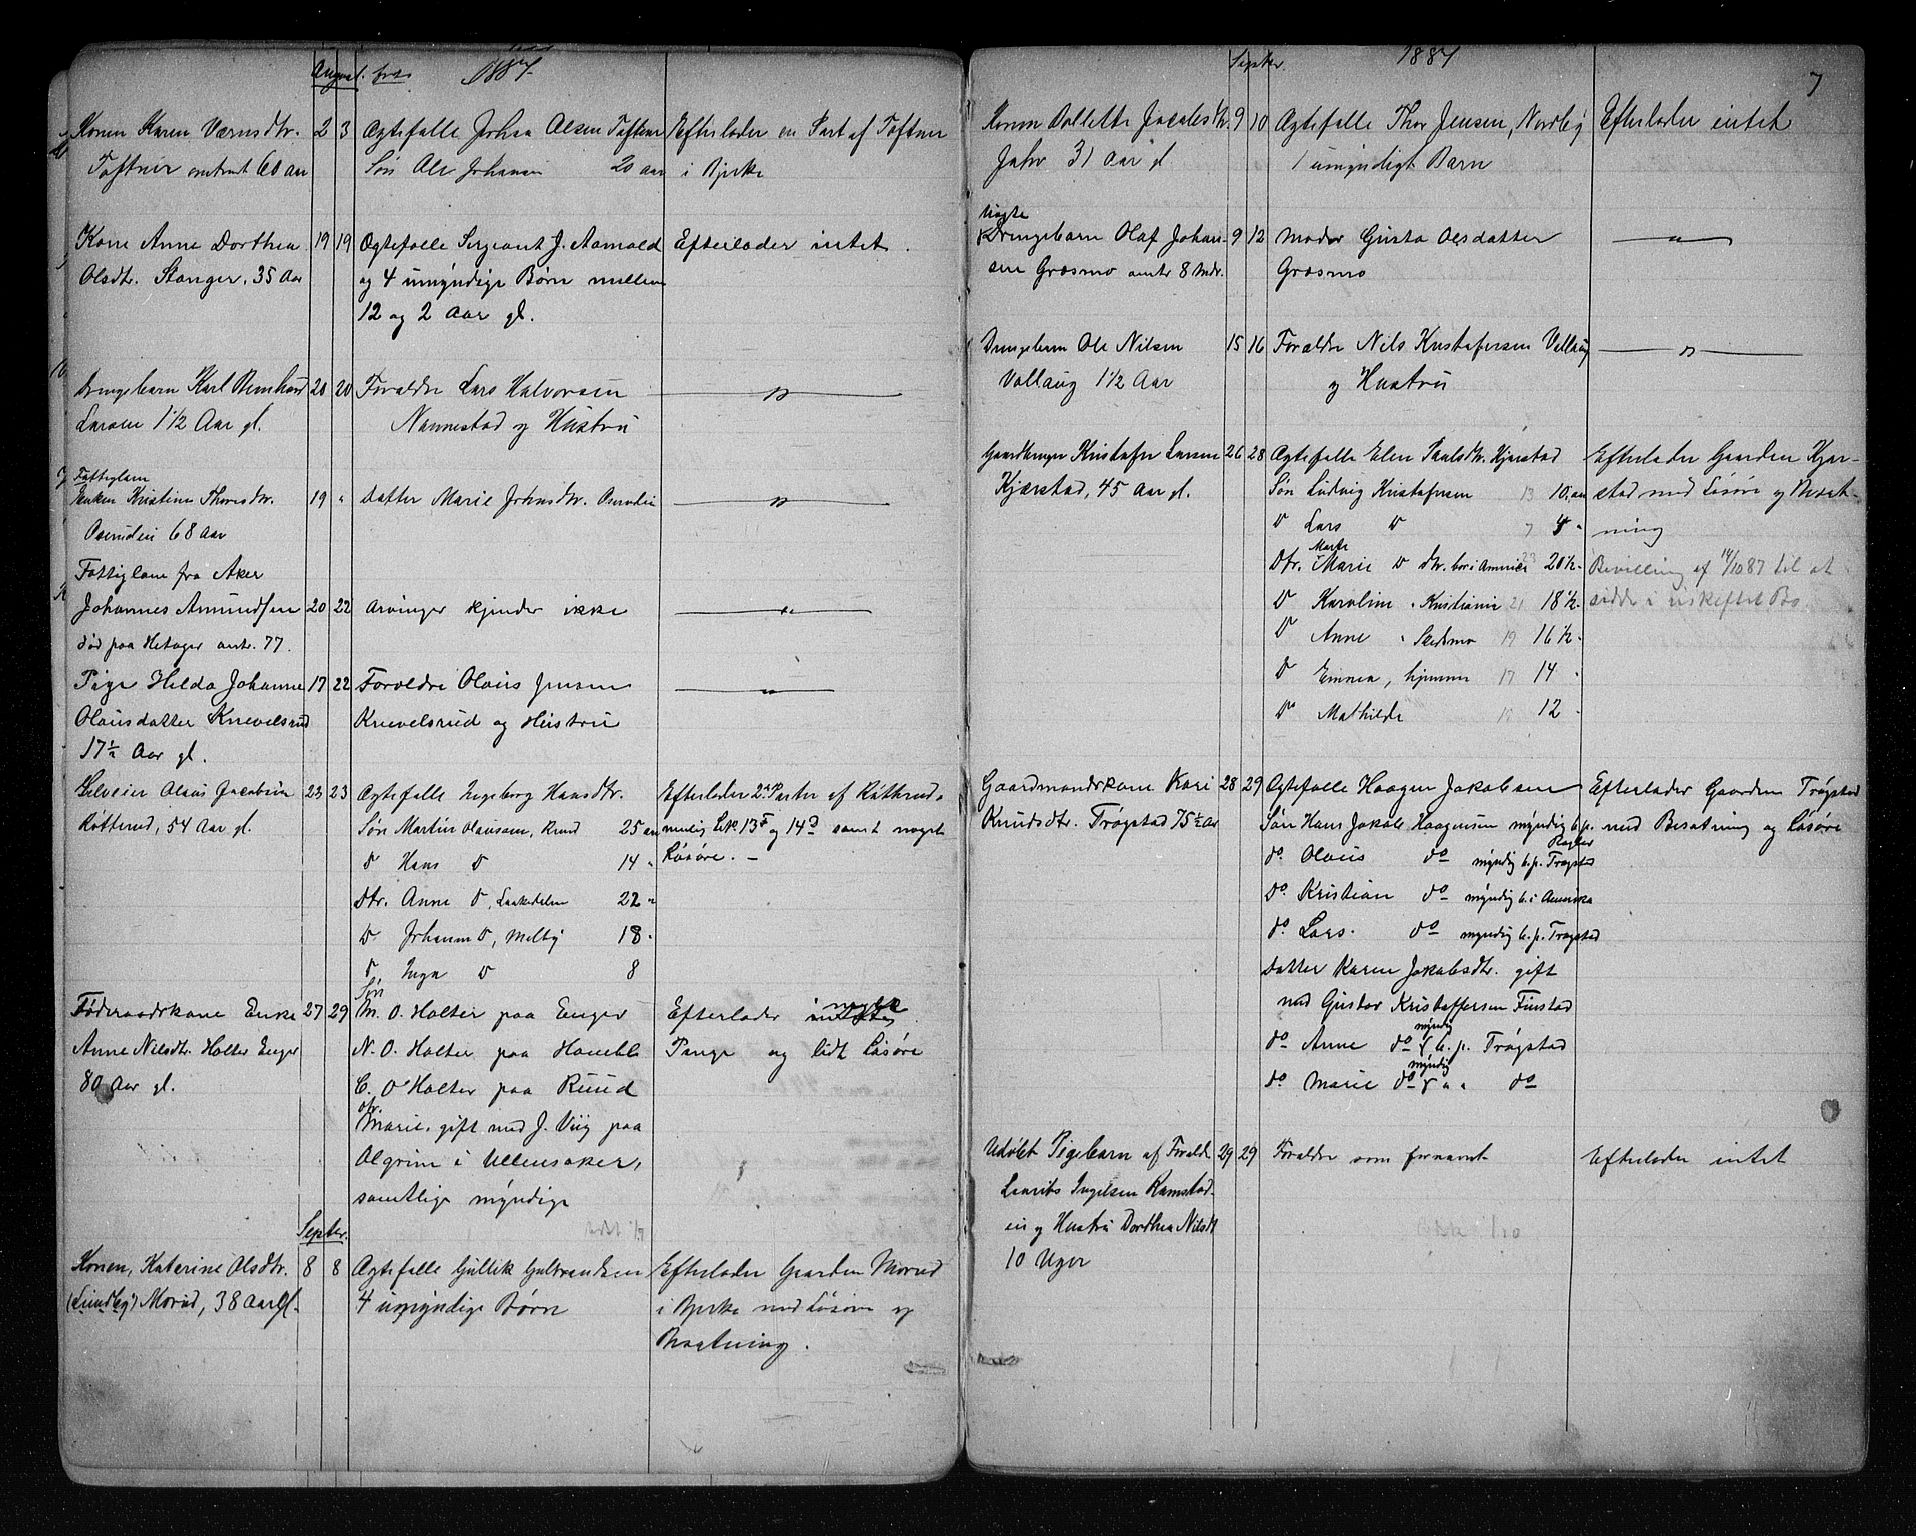 August. 1887.
Konen Karen Værnsdtr. 2 3 Ægtefælle Johan Olsen Toftner Efterlader en Part af Toftner
Toftner omtrent 60 Aar Søn Ole Johansen 20 aar i Bjerke
Kone Anne Dorthea 19 19 Ægtefælle Sergeant J. Aamold Efterlader intet.
Olsdtr. Stanger, 35 Aar og 4 umyndige Børn mellem
12 og 2 Aar gl.
Drengebarn Karl Bernhard 20 20 Forældre Lars Halvorsen — " —
Larsen 1 1/2 Aar gl. Nannestad og Hustru
Fattiglem
Enken Kristine Thoresdtr. 19 " Datter Marie Johnsdtr. — " —
68 Aar
Fattiglem fra Aker
Johannes Amundsen 20 22 Arvinger kjender ikke — " —
død paa Hetager omtr. 77.
Pige Hilda Johanne 17 22 Forældre Olaus Jensen — " —
Olausdatter Knevelsrud Knevelsrud og Hustru
17 1/2 Aar gl.
Selveier Olaus Jacobsen 23 23 Ægtefælle Ingeborg Hansdtr. Efterlader 2de Parter af
54 Aar gl. Søn Martin Olaussen, Ruud 25 aar 13 og 14 samt noget
do Hans do 14 " Løsøre. —
Dtr. Anne do, 22 "
do Johanne do, Melby 18 "
do, Inga do 8
Søn
Føderaadskone Enke 27 29 M. O. Holter paa Enger Efterlader nogle
Anne Nilsdtr. Holter Enger N. O. Holter paa Penge og lidt Løsøre
80 Aar gl. C. O Holter paa Ruud
dtr.
Marie, gift med J. Viig paa
Algrim i Ullensaker,
samtlige myndige
Septer.
Konen, Katerine Olsdtr. 8 8 Ægtefælle Gullik Gulbrandsen Efterlader Gaarden Morud
(Lundby) Morud, 38 Aar gl. 4 umyndige Børn i Bjerke med Løsøre og
Besætning.
Septer. 1887 7
Konen Jacobsdtr. 9 10 Ægtefælle Thor Jensen, Nordby Efterlader intet
31 Aar gl 1 umyndigt Barn
Uægte
Drengebarn Olaf Johan- 9 12 Moder Gusta Olsdatter — " —
sen Græsmo omtr 8 Mdr. Græsmo
Drengebarn Ole Nilsen 15 16 Forældre Nils Kristofersen Vollaug — " —
Vollaug 1 1/2 Aar og Hustru
Gaardbruger Kristofer Larsen 26 28 Ægtefælle Elen Paulsdtr. Kjærstad Efterlader Gaarden Kjær-
Kjærstad, 45 Aar gl. Søn Ludvig Kristofersen 13 10 aar stad med Løsøre og Besæt-
do Lars do 7 4 " ning
Marte
Dtr. Marie do 23 20 1/2 - Bevilling af 14/10 87 til at
do Karoline " Kristiania 21 18 1/2 - sidde i uskiftet Bo.
do Anne " Skedsmo 19 16 1/2 -
do Emma, hjemme 17 14 "
do Mathilde 12 "
Gaardmandskone Kari 28 29 Ægtefælle Haagen Jakobsen Efterlader Gaarden Trøgstad
Knudsdtr. Trøgstad 75 1/2 Aar Søn Hans Jakob Haagensen myndig b. p. med Besætning og Løsøre
do. Olaus do myndig b. p. Trøgstad
Do. Kristian do myndig b. i Amerika
do. Lars. do myndig b. p. Trøgstad
Datter Karen Jakobsdtr. gift
med Gustav Kristoffersen Finstad
myndig
do Anne do b. p. Trøgstad
myndig
do Marie do " " do
Udøbt Pigebarn af Foræld 29 29 Forældre som fornævnt Efterlader intet
Laurits Ingelsen Ramstad-
en og Hustru Dorthea Nilsdt
10 Uger